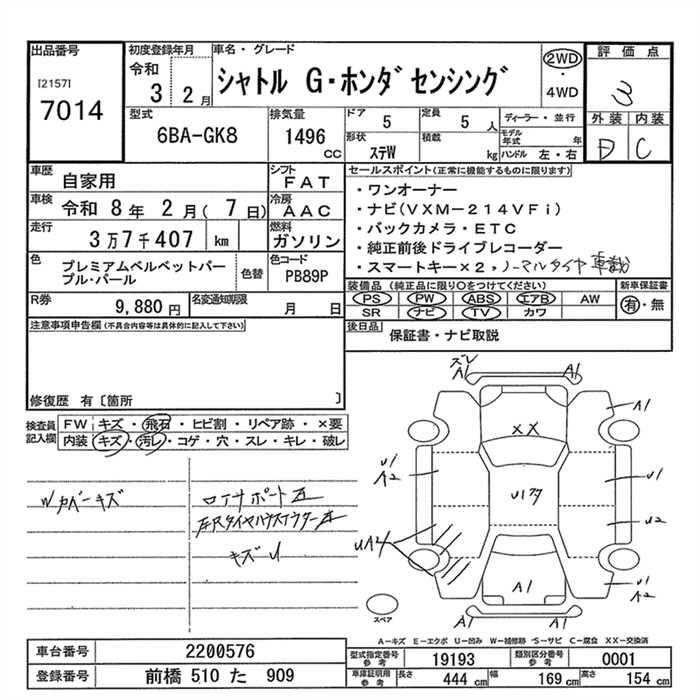 出品番号 初度登録年月 車名・グレード 評価点
[2157] 令和 シャトル G・ホンダ センシング 2WD
7014 3 2月 ・ 3
4WD
型式 排気量 ドア 5 定員 5人 ディーラー・並行 外装 内装
6BA-GK8 1496 CC 形状 ステW 積載 kg モデル年式 年 C
ハンドル 左・右
車歴 自家用 シフト FAT セールスポイント(正常に機能するものに限ります)
車検 令和 8年 2月(7日) 冷房 AAC ・ワンオーナー
走行 3万7千407 km 燃料 ガソリン ・ナビ(VXM-214VFi)
・バックカメラ・ETC
色 プレミアムベルベットパー 色替 色コード ・純正前後ドライブレコーダー
プル・パール PB89P ・スマートキー×2,ノーマルタイヤ車載
R券 9,880円 名変通知期限 月 日 装備品 (純正品に限り〇をつけてください) 新車保証書
PS PW ABS エアB AW 有・無
SR ナビ TV カワ
注意事項申告欄(不具合内容等は具体的に記入して下さい) 後日品 保証書・ナビ取説
修復歴 有〔箇所 〕
検査員記入欄 FW キズ・飛石・ヒビ割・リペア跡・×要
内装 キズ・汚レ・コゲ・穴・スレ・キレ・破レ
ズレ
A1 A1
A1
XX
U1 A2 U1
U2
UA4
A1 U1 A2
A1 A1
スペア
カバーキズ
キズU
A-キズ E-エクボ U-凹み W-補修跡 S-サビ C-腐食 XX-交換済
車台番号 2200576 型式指定番号 参考 19193 類別区分番号 参考 0001
登録番号 前橋 510 た 909 車庫証明用 参考 長さ 444 cm 幅 169 cm 高さ 154 cm